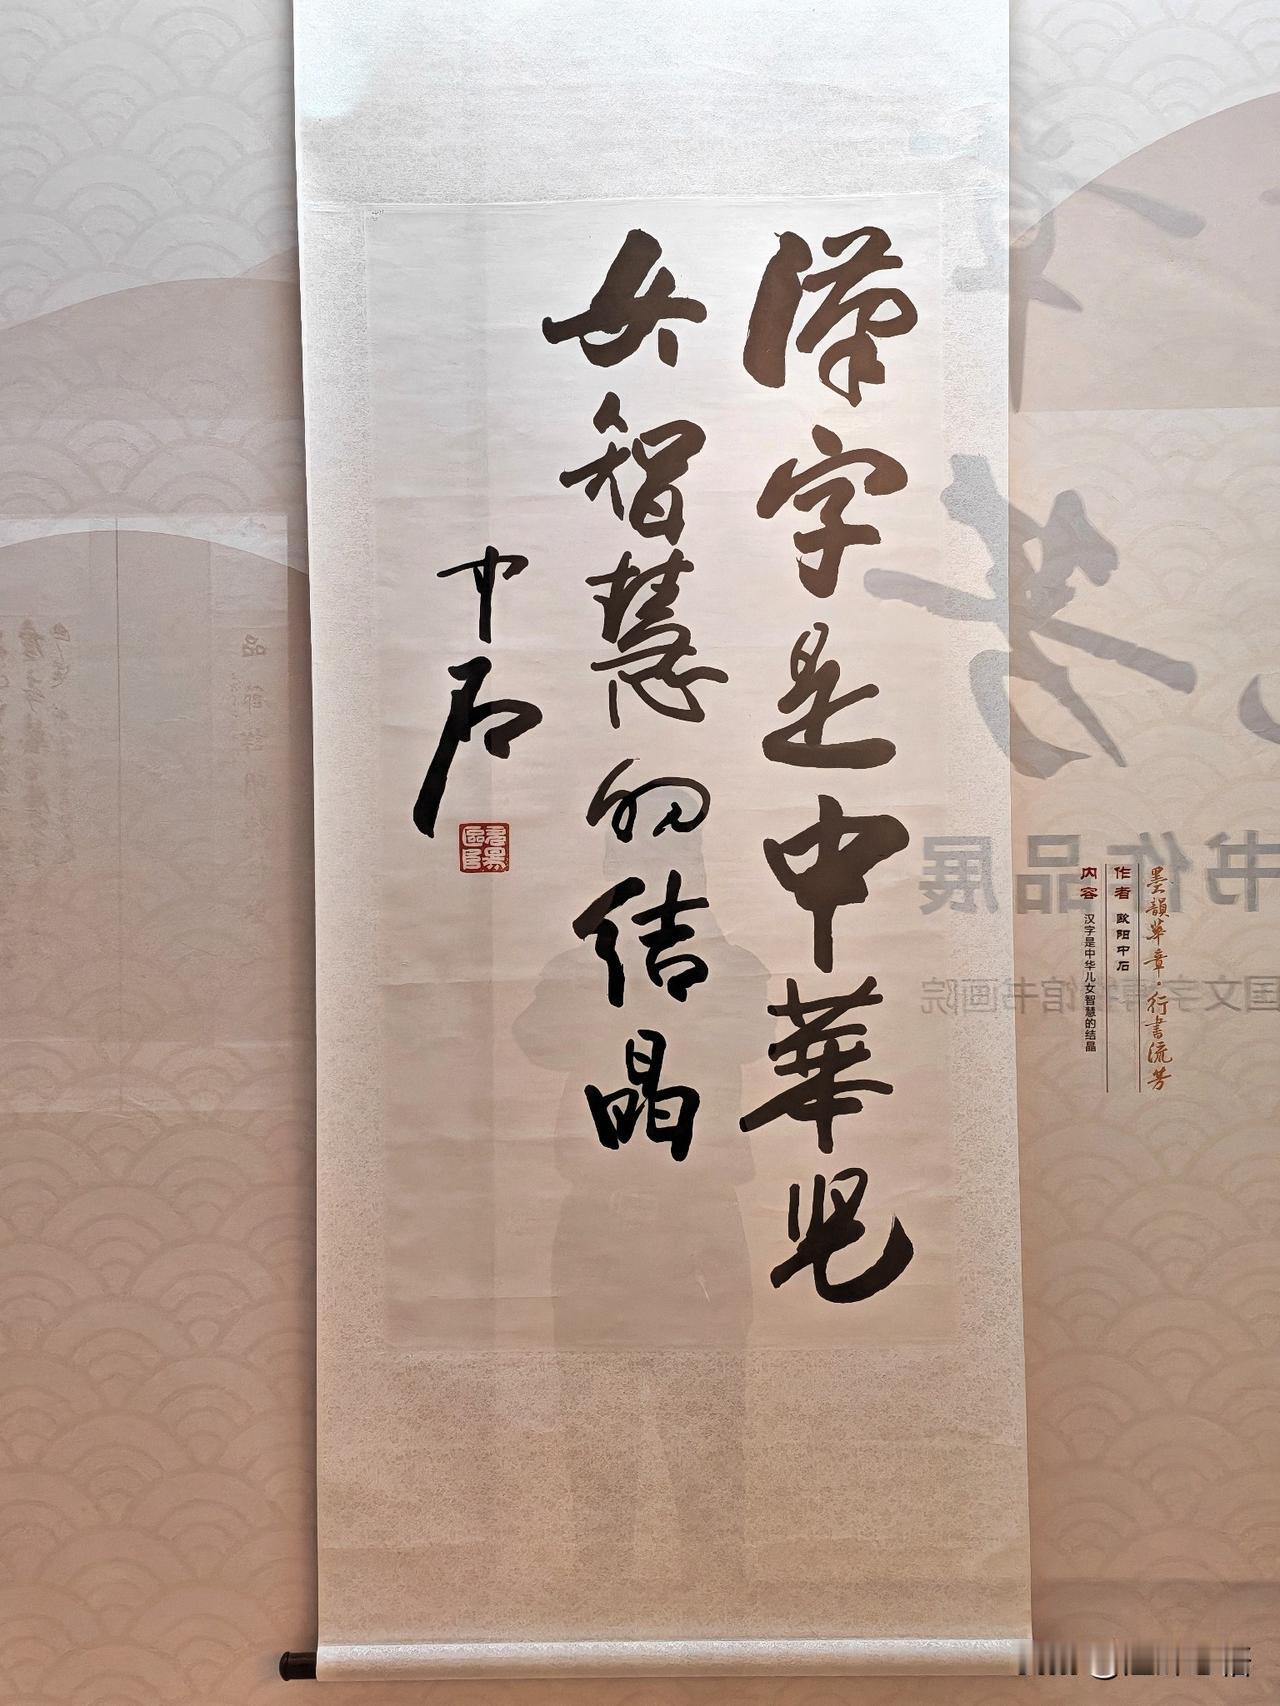 漢字是中華児
女智慧的结晶
中石
墨韻華章·行書流芳
作者 欧阳中石
内容 汉字是中华儿女智慧的结晶
书作品展
国文字博物馆书画院